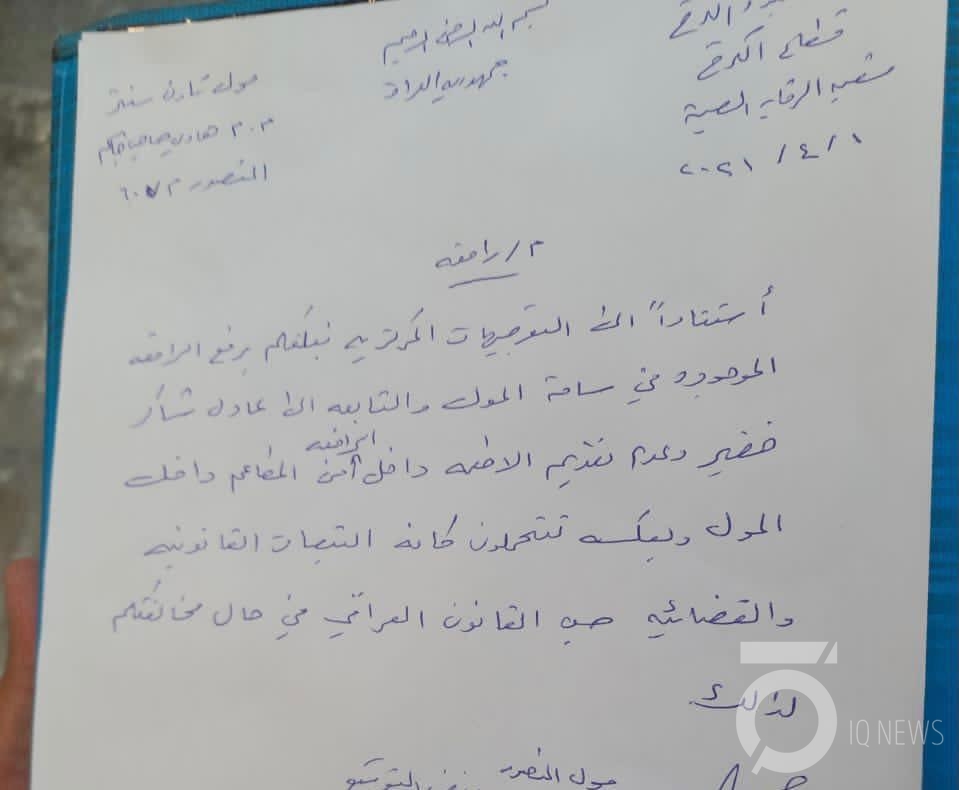 بسم الله الرحمن الرحيم
جمهورية العراق
قطاع الكرخ
شعبة الرقابه الصحية
٢٠٢١ / ٤ / ١
مول
المنصور
م / رافعه
أستناداً الى التوجيهات المركزيه نبلغكم برفع الرافعه
الموجوده في ساحة المول والتابعه الى عادل شاكر
خضير وعدم تقديم الاطعمه داخل الرافعه من المطاعم داخل
المول وبعكسه تتحملون كافه التبعات القانونيه
والقضائيه حسب القانون العراقي في حال مخالفتكم
لذلك.
مول المنصور
IQ NEWS